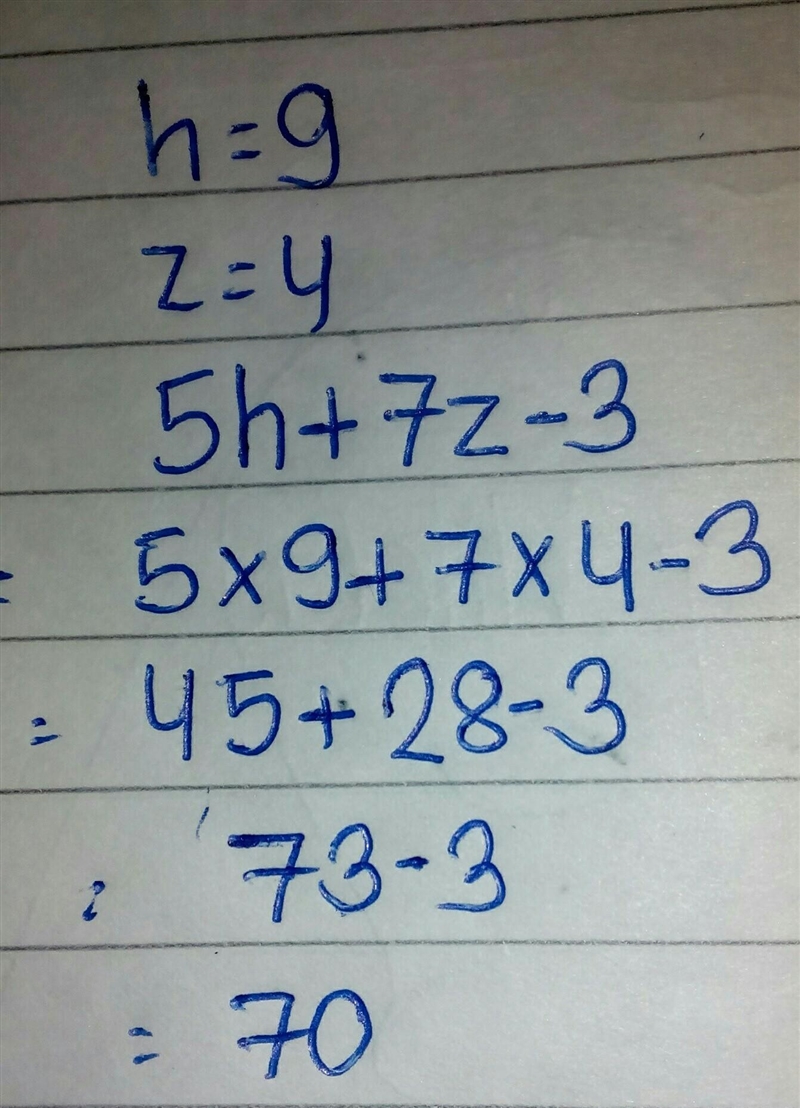 h=9
z=4
5h+7z-3
= 5×9+7×4-3
= 45+28-3
: 73-3
= 70